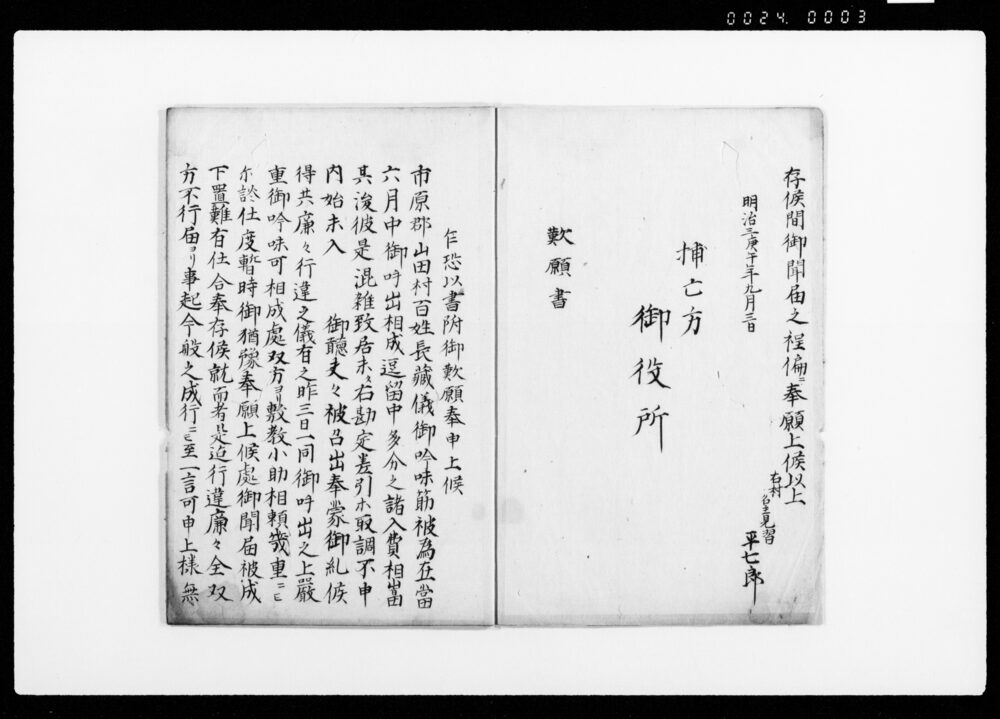 0024. 0003
存候間御聞届之程偏ニ奉願上候以上
右村
名主見習
平七郎
明治三庚午年九月三日
捕亡方
御役所
歎願書
乍恐以書附御歎願奉申上候
市原郡山田村百姓長藏儀御吟味筋被為在當
六月中御呼出相成逗留中多分之諸入費相嵩
其後彼是混雑致居未々右勘定差引ホ取調不申
内始末入 御聽夫々被召出奉蒙御糺候
得共廉々行違之儀有之昨三日一同御呼出之上嚴
重御吟味可相成處双方ヨリ敷教小助相頼幾重ニも
示談仕度暫時御猶豫奉願上候處御聞届被成
下置難有仕合奉存候就而者是迠行違廉々全双
方不行届ヨリ事起今般之成行ニも至一言可申上様無